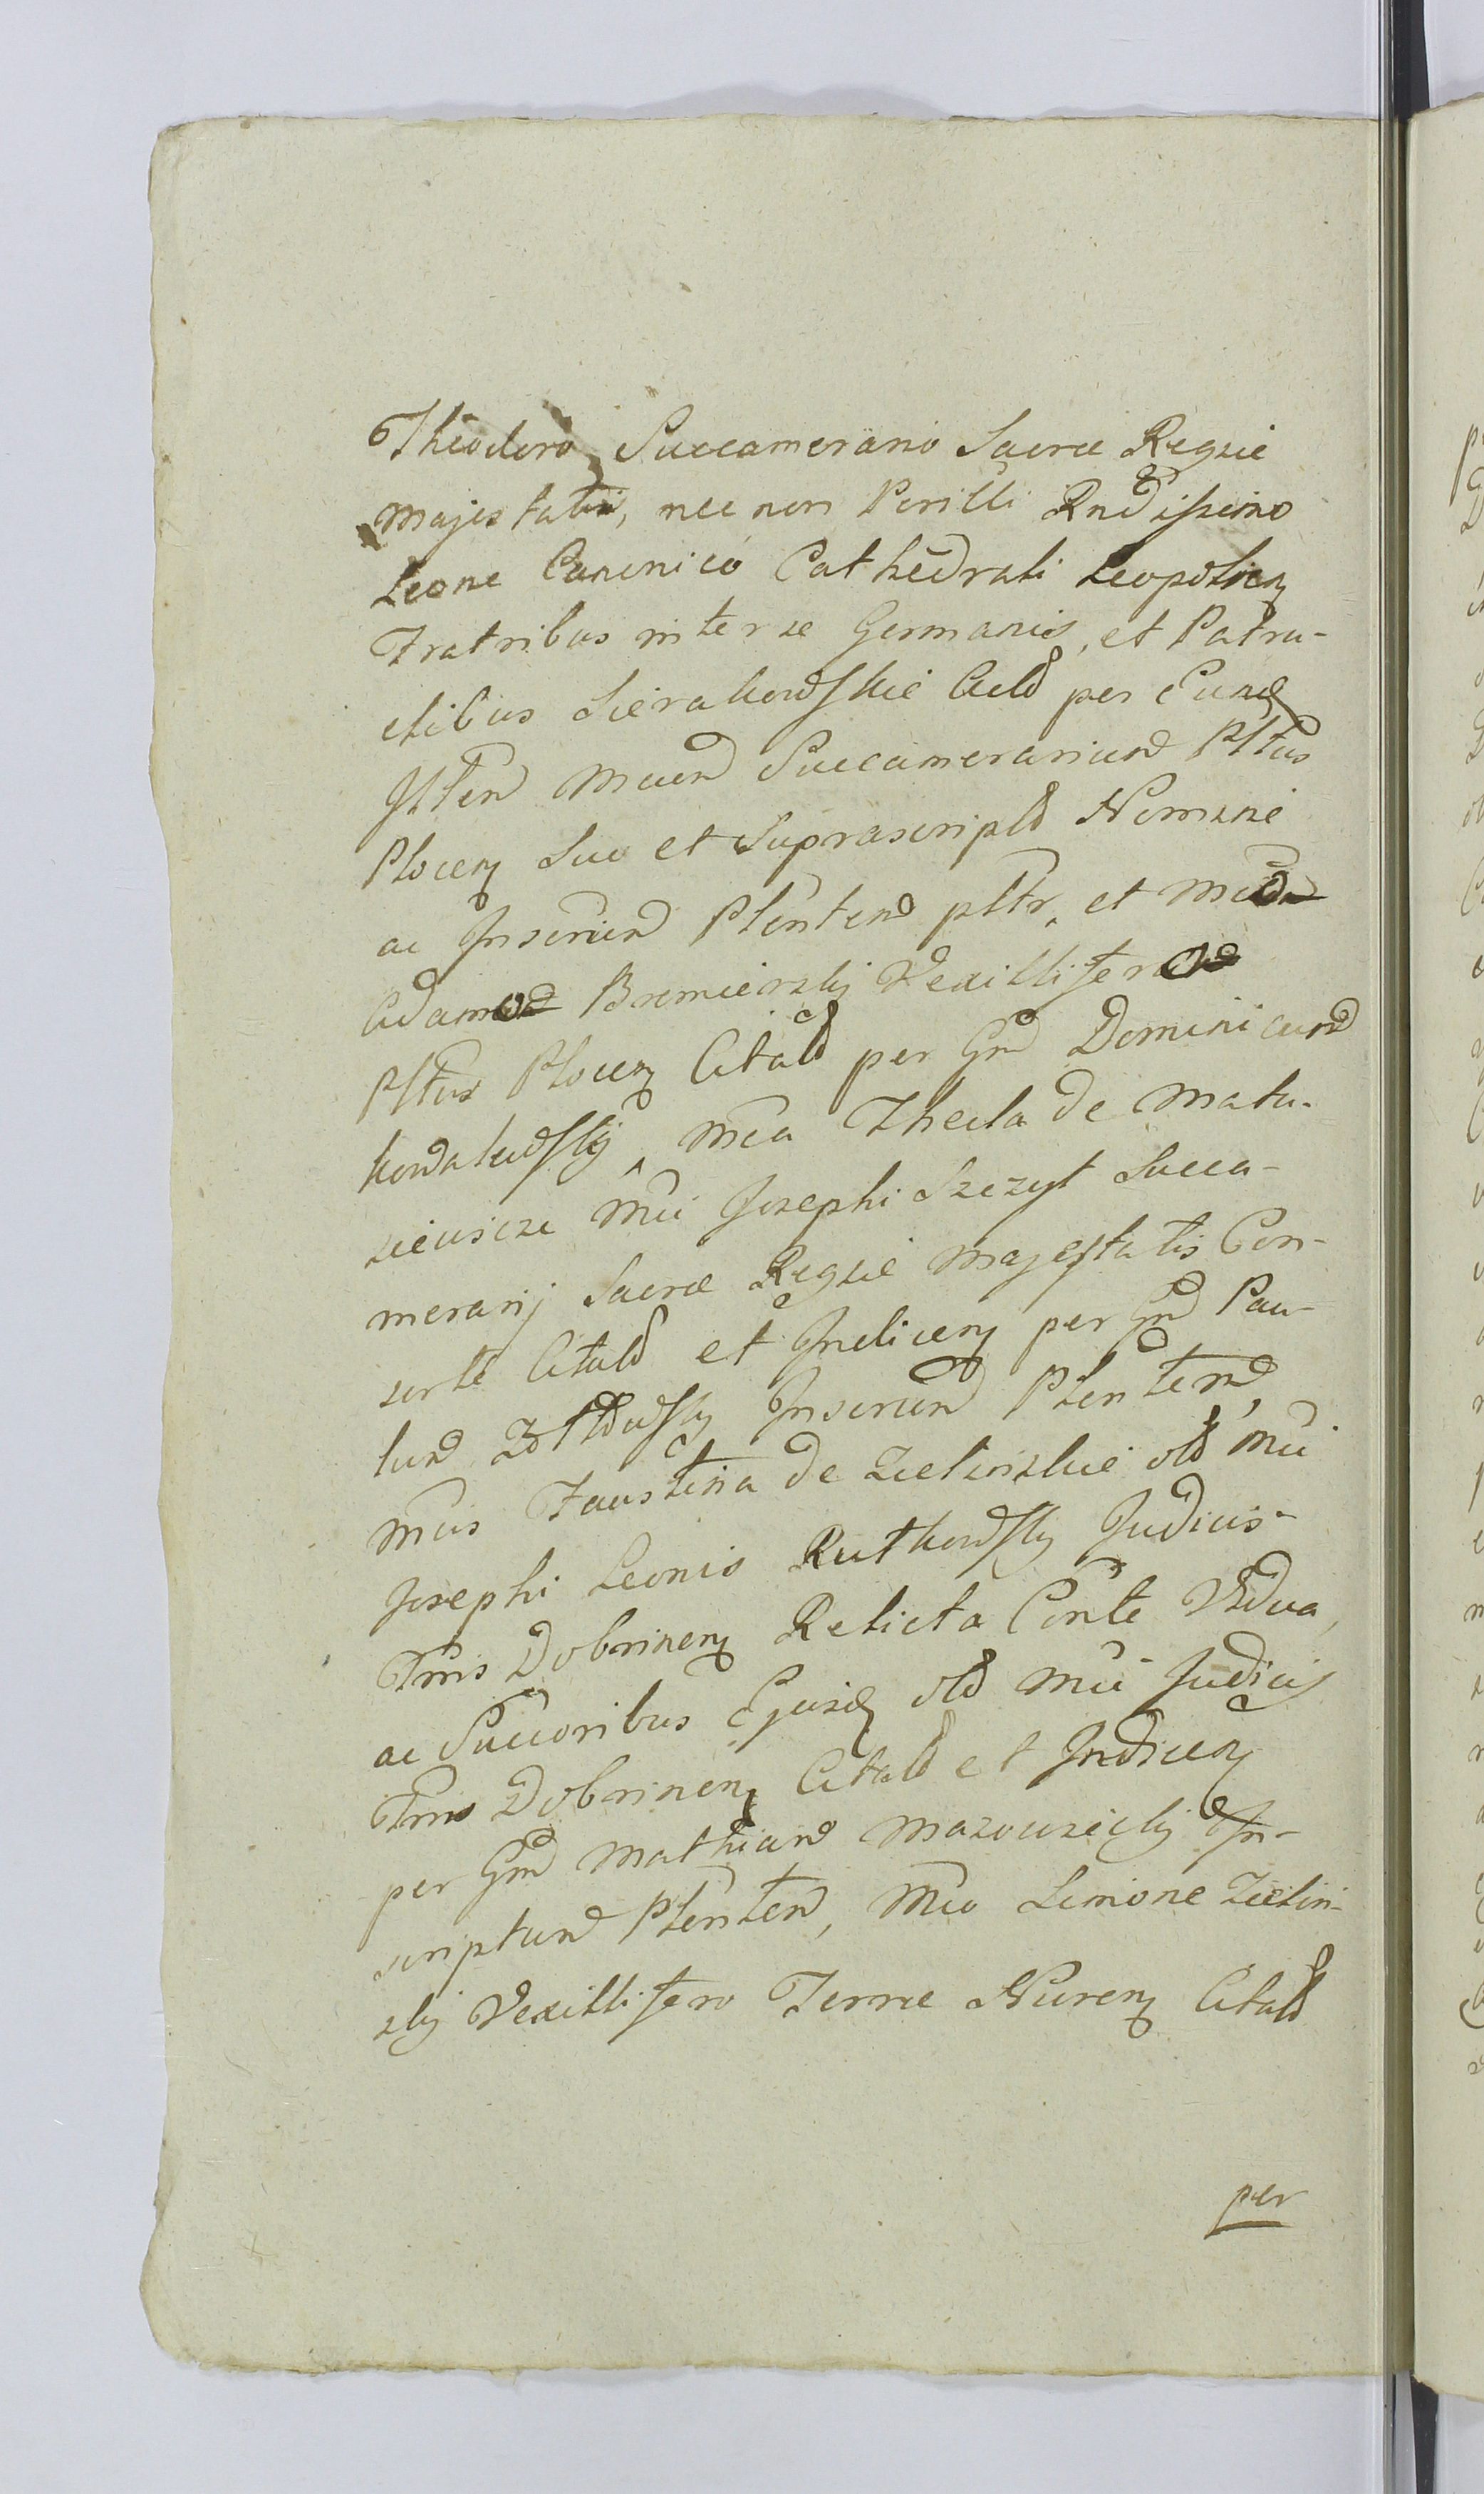 Theodoro Succamerario Sacræ Regiæ
Majestatis, nec non Perilli Rndissimo
Leone Canonico Cathedrali Leopolien
Fratribus inter se Germanis, et Patru-
elibus Sierakowskie Actd per Eund
Illen Mcum Succamerarium Pltus
Plocen Suo et Suprascriptd Nomine
ac Inscrium Plenten pltr, et Mco
Adamo Bromierskj Vexillifero
Pltus Plocen Citatd per Gnd Dominicum
Kowalewskj, Mca Thecla de Matu-
siewicze Mci Josephi Szczyt Succa-
merarij Sacræ Regiæ Majestatis Con-
sorte Citatd et Indicen per Gnd Pau-
lum Zołtowskj Inscrium Plentem,
Mcis Faustina de Zielinskie old Mci
Josephi Leonis Rutkowskj Judicis
Trris Dobrinen Relicta Conte Vidua,
ac Succoribus Ejusd old Mci Judicis
Trris Dobrinen Citatd et Indicen
per Gnd Mathiam Mazowieckj In-
scriptum Plentem, Mco Simone Zielin-
skj Vexillifero Terræ Nuren Citatd
per